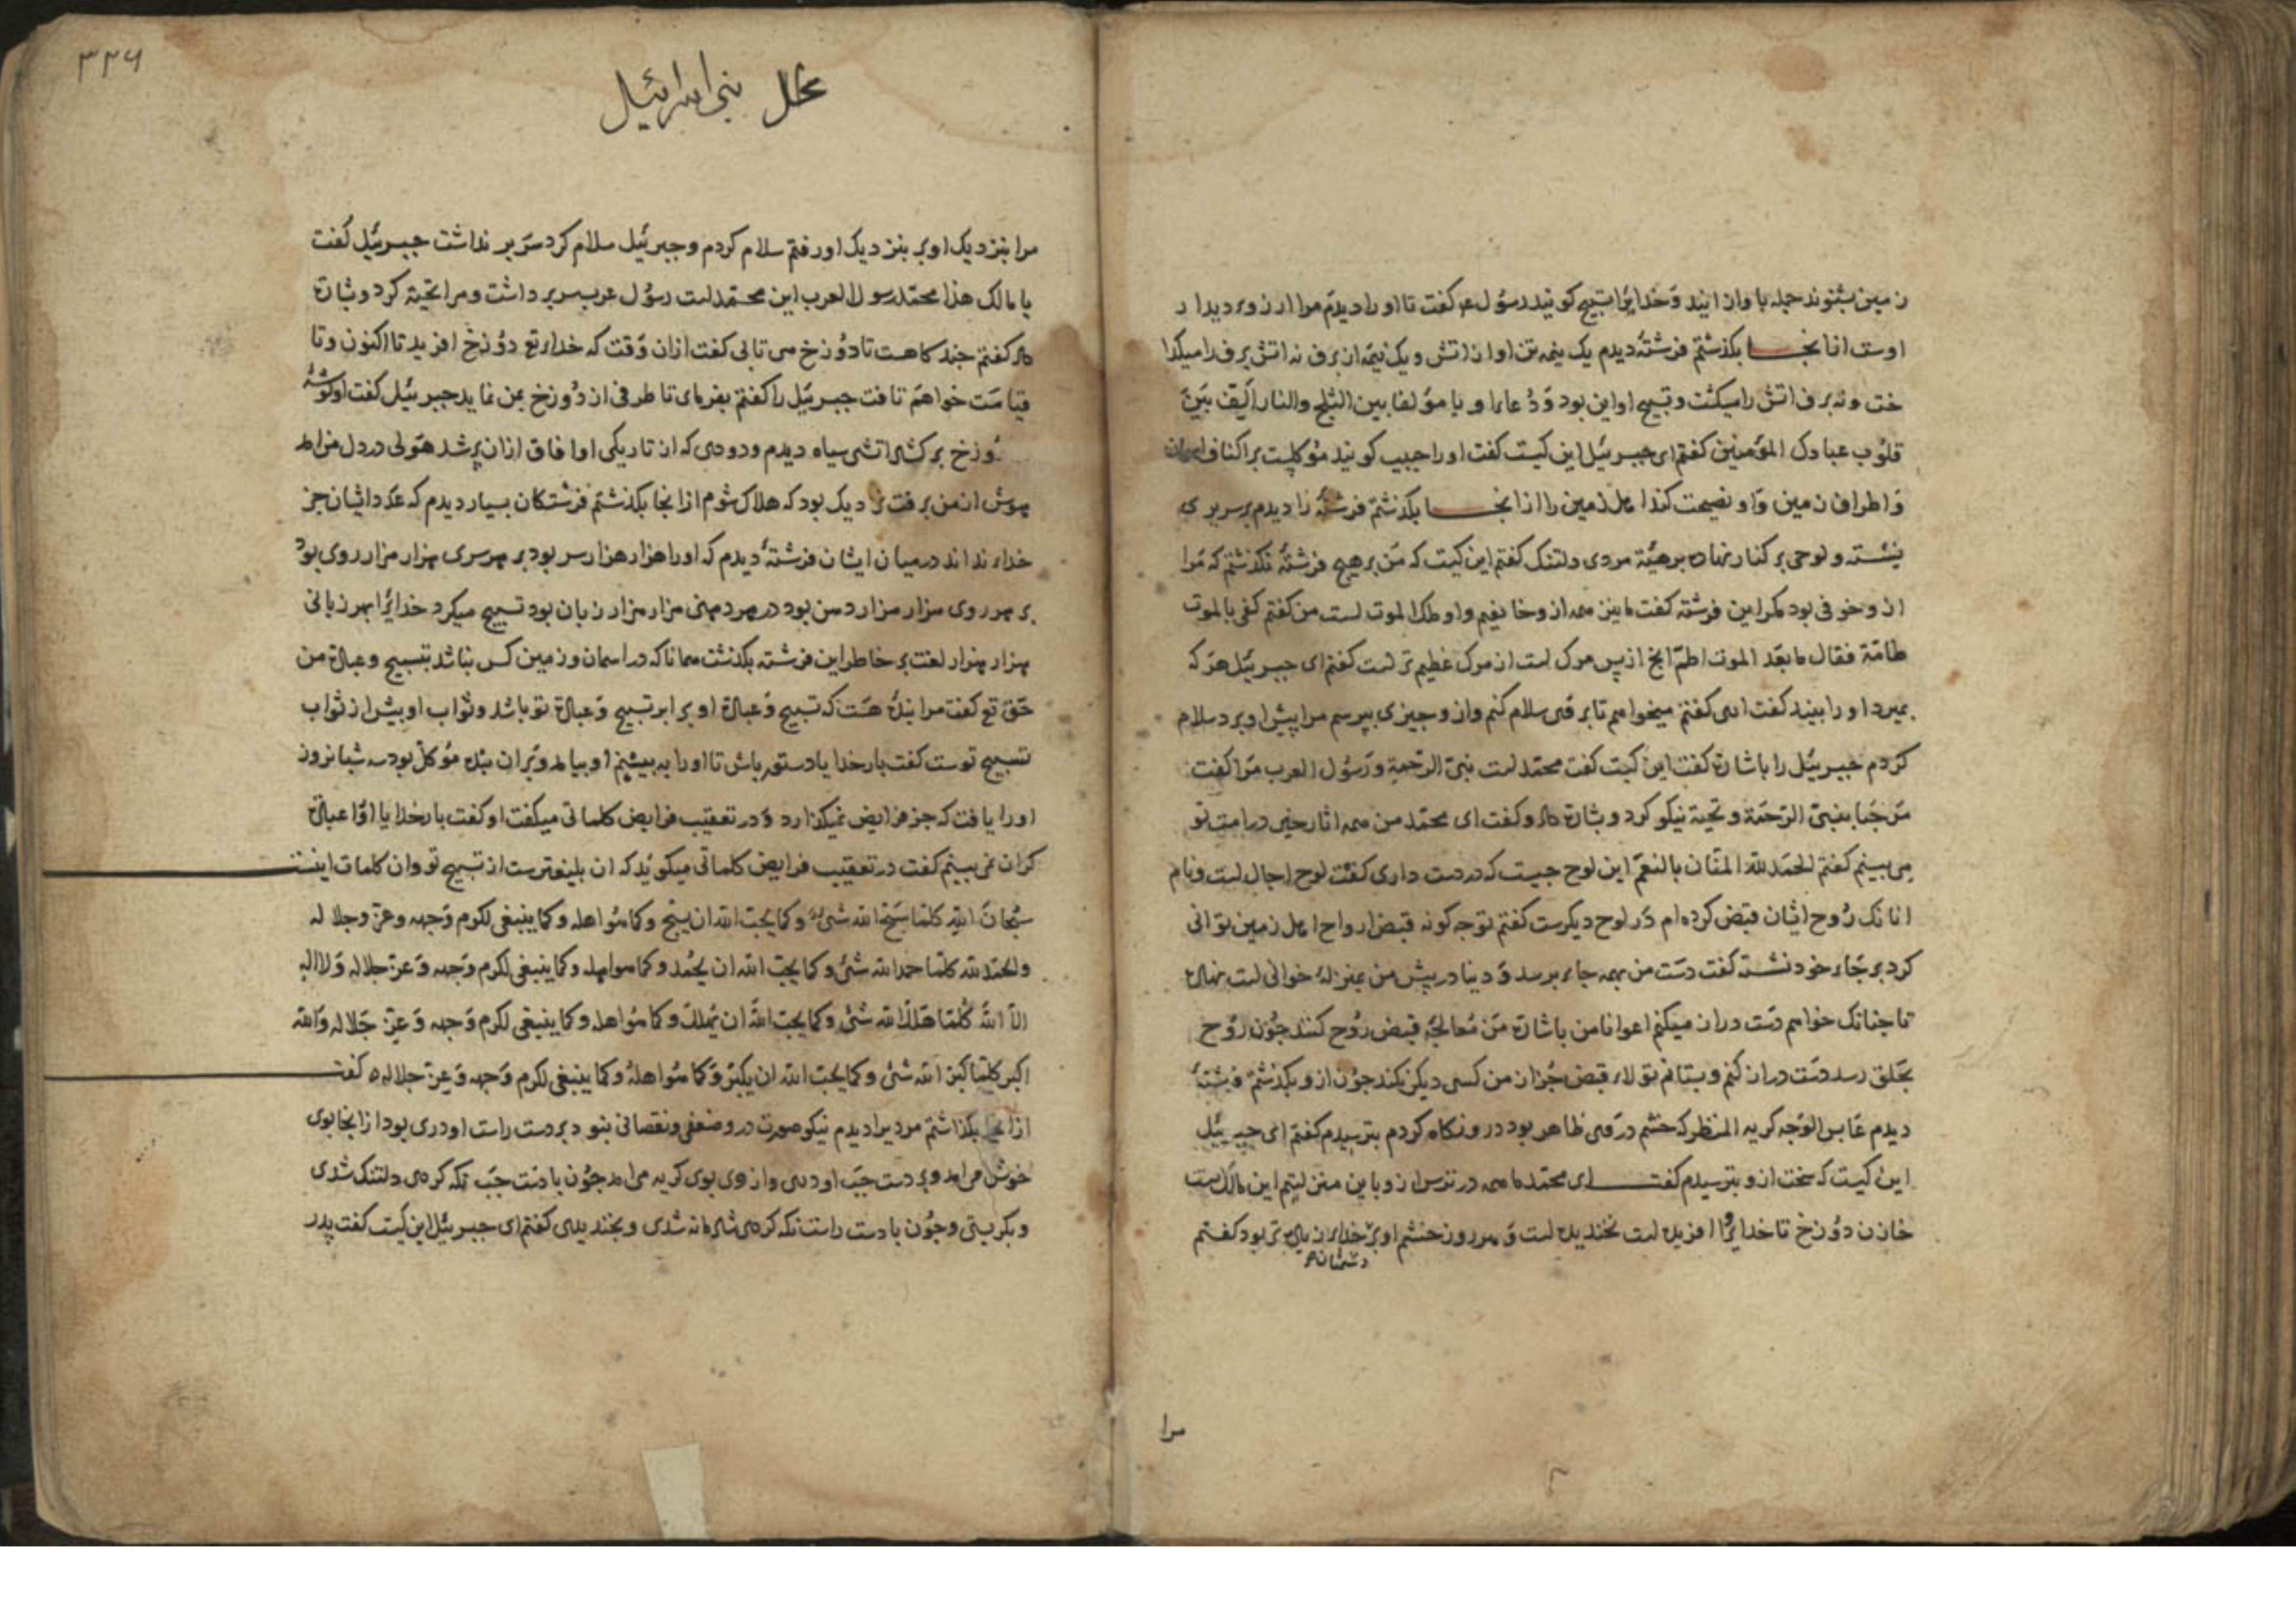 زمین بشنوند جمله باواز ایند وَخدایرا تسبیح کویند رسُول ع کفت تا او را دیدم مرا ارزوی دیدار
اوست ازانجا بکذشتم فرشتهٔ دیدم یک نیمه تن او از اتش و یک نیمه از برف نه اتش برف را میکدا
خت و نه برف اتش را میکشت و تسبیح او این بود وَ دُعاء او یا مؤلفا بین الثلج والنار الّف بَیْنَ
قلوُب عبادک المؤمنین کفتم ای جبرئیل این کیست کفت او را حبیب کویند مؤکلست بر اکناف
وَ اطراف زمین وَ او نصیحت کند اهل زمین را ازانجا بکذشتم فرشتهٔ را دیدم بر سریری
نشسته و لوحی بر کنار نهاده برهیئة مردی دلتنک کفتم این کیست که مَن بر هیچ فرشتهٔ نکذشتم که مَرا
از و خوفی بود مکر این فرشته کفت ما نیز همه از و خایفیم و او ملک الموت است من کفتم کفی بالموت
طامّة فقال ما بعَد الموت اطمّ انچ از پس مرک است از مرک عَظیم تر است کفتم ای جبرئیل هرکه
بمیرد او را بیند کفت اری کفتم میخواهم تا بر وَی سلام کنم واز و چیزی بپرسم مرا پیش او برد سلام
کَردم جبرئیل را باشارة کفت این کیست کفت محمّد است نبیّ الرّحمة و رَسُول العرب مَرا کفت
مَرحَبا بنبیّ الرّحمَة و تحیة نیکو کرد و بشارة داد و کفت ای محمّد من همه اثار خیر در امت تو
می بینم کفتم الحمدلله المنّان بالنعَم این لوح چیست که در دست داری کفت لوح اجال است و نام
انانک رُوح ایشان قبض کرده ام دَر لوح دیکرست کفتم تو چه کونه قبض ارواح اهل زمین توانی
کرد بر جَاء خود نشسته کفت دسَت من بهمه جاء برسد وَ دنیا در پیش من بمنزلهٔ خوانی است نهاده
تا چنانک خواهم دَست دران میکنم اعوانا من باشارة مَن مُعالجهٔ قبض رُوح کنند چُون روُح
بحَلق رسد دسَت دران کنم و بستانم تولاء قبض جُز ان من کسی دیکر نکند چوُن ازو بکذشتم فرشتهٔ
دیدم عَابس الوَجه کریه المنظر که خشم در وَی ظاهر بود در و نکاه کردم بترسیدم کفتم ای جبرئیل
این کیست که سخت ازو بترسیدم کفت ای محمّد ما همه در ترس ازو باین منزلیتم این مالک است
خازن دوُزخ تا خدا او را افریده است نخندیده است وَ هر روز خشم او بر دشمنان خدای زیاده تر بود کفتم
مرا
۳۳۶
محل بنی اسرائیل
مرا بنزدیک او بر بنزدیک او رفتم سلام کردم و جبرئیل سلام کرد سَر بر نداشت جبرئیل کُفت
یا مالک هذا محمّد رسول العرب این محمّد است رسوُل عرب سر بر داشت و مرا تحیّة کرد و بشارة
داد کفتم چند کاهست تا دوُزخ می تابی کفت ازان وَقت که خدای تع دوُزخ افرید تا اکنون و تا
قیامَت خواهم تافت جبرئیل را کفتم بفرمای تا طرفی از دُوزخ بمن نماید جبرئیل کفت او کوشهٔ
دُوزخ برکشاد اتشی سیاه دیدم و دودی که از تاریکی او افاق ازان پر شد هَولی در دل من امد
هوش از من برفت نزدیک بود که هلاک شوم ازانجا بکذشتم فرشتکان بسیار دیدم که عدد ایشان جز
خدای نداند در میان ایشان فرشتهٔ دیدم که او را هزار هزار سر بود بر هر سری هزار هزار روی بود
بر هر روی هزار هزار دهن بود در هر دهنی هزار هزار زبان بود تسبیح میکرد خدایرا بهر زبانی
هزار هزار لغت بر خاطر این فرشته بکذشت همانا که در اسمان و زمین کس نباشد بتسبیح و عبادة من
حَق تع کفت مرا بندهٔ هسَت که تسبیح وَ عبادة او برابر تسبیح وَ عبادة تو باشد و ثواب او بیش از ثواب
تسبیح توست کفت بار خدایا دستور باش تا او را به بینم او بیامد و بَران بنده مؤکل بود سه شبانروز
او را یافت که جز فرایض نمیکذارد وَ در تعقیب فرایض کلماتی میکفت او کفت بار خدایا او را عبادة
کران نمی بینم کفت در تعقیب فرایض کلماتی میکویَد که ان بلیغترست از تسبیح تو وان کلمات اینست
سُبحانَ اللهِ کلمَا سَبَّحَ الله شئٌ وَکما یحُبّ الله ان یسبّح وَکما هُو اهله وکما ینبغی لکرم وَجهه وعزّ جلاله
والحمدلله کلما حمدا لله شئ وکما یحبّ الله ان یحُمد وکما هو اهله وکما ینبغی لکرم وَجهه وَ عزّ جلاله وَ لا اله
الاّ اللهُ کُلما هَلّلَ الله شئٌ وکما یحبّ اللهُ ان یُهلّل وَ کما هُو اهله وکما ینبغی لکرم وَجهه وَ عزّ جَلاله وَالله
اکبر کلما کبّر الله شئٌ وکما یحُبّ الله ان یکبّر وَکما هُو اهلهُ وکما ینبغی لکرم وَجهه وَعزّ جلاله کفت
ازانجا بکذاشتم مردیرا دیدم نیکو صورت در و ضعفی و نقصانی نبود بر دست راست او دری بود ازانجا بوی
خوش می امد وبر دست چپَ او دری واز وی بوی کریه می امد چوُن با دَست چپَ نکه کردی دلتنک شدی
و بکریستی و چوُن با دست راست نکه کردی شادمانه شدی و بخندیدی کفتم ای جبرئیل این کیست کفت پدر